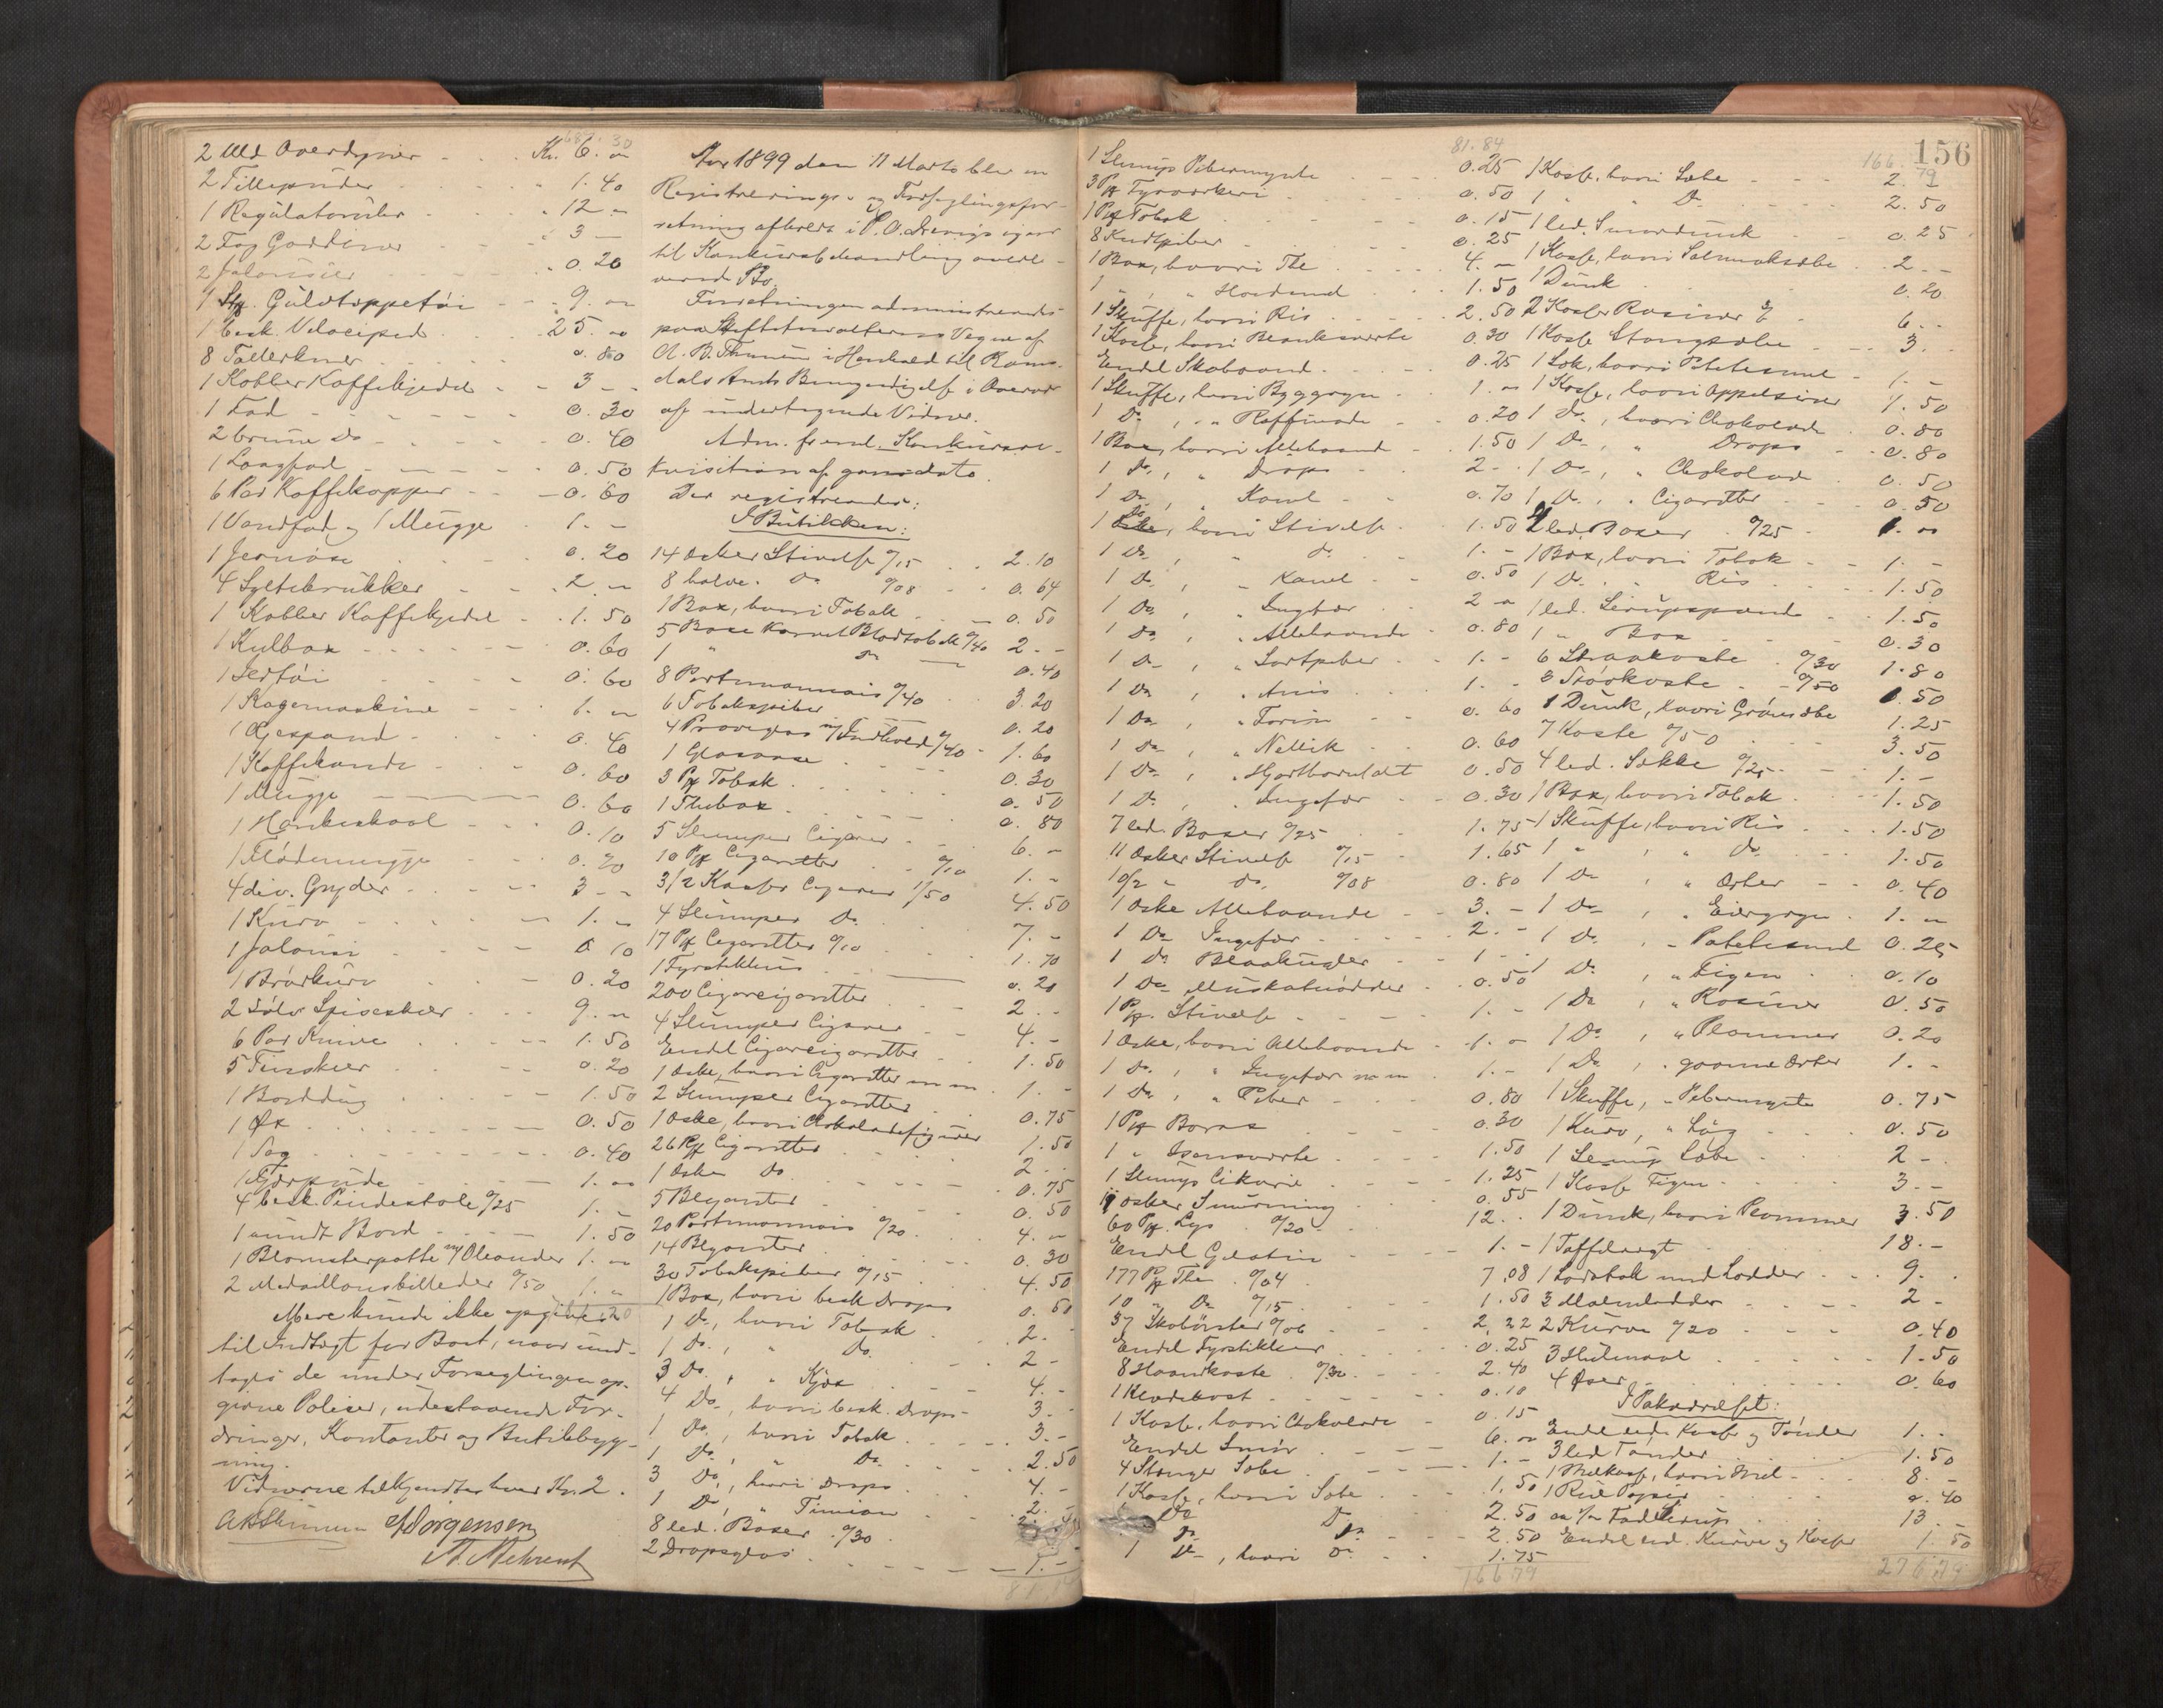 2 Uld Overdyner Kr. 6. "
2 Tillepuder 1. 40
1 Regulatoruhr 12 "
2 Fag Gardiner 3 -
2 Jalousier 0. 20
1 Stk. Gulvteppetøi 9. "
1 besk. Velociped 25. "
8 Tallerkner 0. 80
1 Kobber Kaffekjedel 3 -
1 Fad 0. 30
2 brune Do 0. 40
1 Langfad 0. 50
6 Par Kaffekopper 0. 60
1 Vandfad og 1 Mugge 1. -
1 Jernøse 0. 20
4 Syltekrukker 2. "
1 Kobber Kaffekjedel 1. 50
1 Kulbox 0. 60
1 Letøi 0. 60
1 Kagemaskine 1. "
1 Øsepand 0. 40
1 Kaffekande 0. 60
1 Mugge 0. 60
1 Hankeskaal 0. 10
1 Flødemugge 0. 20
4 div. Gryder 3 -
1 Kurv 1. -
1 Jalousi 0 10
1 Brødkurv 0. 20
2 Sølv Spiseskeer 9. "
6 Par Knive 1. 50
5 Tinskeer 0. 20
1 Borddug 1. 50
1 Øx 0. 50
1 Sag 0. 40
1 Gjærpude 1. "
4 besk. Pindestole %25 1. -
1 rundt Bord 1. 50
1 Blomsterpotte m/ Oleander 1. "
2 Medaillonsbilleder %50 1. "
Mere kunde ikke opgives
til Indtægt for Boet, naar und-
tages de under Forseglingen op-
givne Policer, udestaaende For-
dringer, Kontanter og Butikbyg-
ning.
Vidnerne tilkjendtes hver Kr. 2.
Jørgensen
A. Mehrent
Aar 1899 den 11 Marts blev en
Registrerings- og Forseglingsfor-
retning afholdt i P. O. Drevigs og
til Konkursbehandling overle-
verede Bo.
Forretningen administreredes
paa Skifteforvalterens Vegne af
A. B. Thunem i Henhold til Roms-
dals Amts Bemyndigelse i Overvær
af undertegnede Vidner.
Adm. freml. Konkursre-
kvisition af gaarsdato.
Der registreredes:
I Butikken:
14 Æsker Stivelse %15 2. 10
8 halve Do %08 0. 64
1 Box, hvori Tobak 0. 50
5 Boxe Karvet Bladtobak %40 2. -
1 " Do 0. 40
8 Portmonnais %40 3. 20
6 Tobakspiber 0. 20
4 Prøveglas m/ Indhold %40 1. 60
1 Glasvase 0. 30
3 Pk Tobak 0. 50
1 Thebox 0. 80
5 Slumper Cigarer 6. -
10 Pk Cigaretter %10 1. -
3/2 Kasser Cigarer 1/50 4. 50
4 Slumper Do 7. -
17 Pk Cigaretter %10 1. 70
1 Fyrstikhus 0. 20
200 Cigarcigaretter 2 -
4 Slumper Cigarer 4. -
Endel Cigarcigaretter 1. 50
1 Æske, hvori Cigaretter m m 1. -
2 Slumper Cigaretter 0. 75
1 Æske, hvori Chokoladefigurer 1. 50
26 Pk Cigaretter 2 -
1 Æske Do 0. 75
5 Blyanter 0. 50
20 Portmonnais %20 4. "
14 Blyanter 0. 30
30 Tobakspiber %15 4. 50
1 Box, hvori besk Drops 0. 50
1 Do, hvori Tobak 2. -
1 Do, " Do 2 -
3 Do, " Kjæx 4. -
4 Do, hvori besk. Drops 3. -
1 Do, hvori Tobak 3. -
1 Do, " Do 2. 50
3 Do, hvori Drops 4. -
1 Do, " Timian 2. -
8 led. Boxer %30 2. 40
2 Dropsglas 1. -
81.84
1 Slump Pebermynte 0.25
3 Pk Fyrværkeri 0. 50
1 Pk Tobak 0. 15
8 Kridtpiber 0. 25
1 Box, hvori The 4. -
1 " " Hvedemel 1. 50
1 Skuffe, hvori Ris 2. 50
1 Kasse, hvori Blanksværte 0. 30
Endel Skobaand 0. 25
1 Skuffe, hvori Byggryn 1. "
1 Do, " Raffinade 0. 20
1 Box, hvori Allehaande 1. 50
1 Do, " Drops 2 -
1 Do, " Kanel 0. 70
1 Do, hvori Stivelse 1. 50
1 Do, " Do 1. -
1 Do, " Kanel 0. 50
1 Do, " Ingefær 2 "
1 Do, " Allehaande 0. 80
1 Do, " Sortpeber 1. -
1 Do, " Anis 1. -
1 Do, " Farin 0. 60
1 Do, " Nellik 0. 60
1 Do, " Hjorthornsalt 0. 50
1 Do, " Ingefær 0. 30
7 led. Boxer %25 1. 75
11 Æsker Stivelse %15 1. 65
10/2 " Do, %08 0. 80
1 Æske Allehaande 3. -
1 Do Ingefær 2. -
1 Do Blaakugler 1 -
1 Do Muskatnødder 0. 50
1 Pk. Stivelse 1. -
1 Æske, hvori Allehaande 1. -
1 Do, " Ingefær m m 1. -
1 Do, " Peber 0. 80
1 Pk Borax 0. 30
1 " Ovnsværte 1. 50
1 Slump Cikorie 1. 25
11 Æsker Smurning 0. 55
60 Pk. Lys %20 12. -
Endel Gelatin 1. -
177 Pk The %04 7.08
10 " Do %15 1. 50
37 Skobørster %06 2, 22
Endel Fyrstikker 0. 25
8 Haandkoste %30 2. 40
1 Klædekost 0. 10
1 Kasse, hvori Chokolade 0. 15
Endel Smør 6. "
4 Stænger Sæbe 1. -
1 Kasse, hvori Sæbe 1. 50
1 Do Do 2. 50
1 Do Do 2. 50
1 Do, hvori Do 1. 75
166 79
166. 79
156
1 Kasse, hvori Sæbe 2. -
1 " " Do 2. 50
1 led. Smørdunk 0. 25
1 Kasse, hvori Salmiaksæbe 2. -
1 Dunk 0. 20
2 Kasser Rosiner 6. -
1 Kasse Stangsæbe 3. -
1 Sæk, hvori Potetesmel 1. -
1 Kasse, hvori Appelsiner 1. 50
1 Do, hvori Chokolade 0. 80
1 Do, " Drops 0. 80
1 Do, " Chokolade 0. 50
1 Do, " Cigaretter 0. 50
4 led. Boxer %25 1. "
1 Box, hvori Tobak 1. -
1 Do. " Ris 1. 50
1 led. Sirupspand 1. 50
1 " Box 0. 30
6 Straakoste %30 1. 80
3 Støvkoste %50 1. 50
1 Dunk, hvori Grønsæbe 1. 25
7 Koste %50 3. 50
4 led. Sække %25 1. -
1 Box, hvori Tobak 1. 50
1 Skuffe, hvori Ris 1. 50
1 " , " Do. 1. 50
1 Do , " Erter 0. 40
1 Do , " Eiergryn 1. "
1 Do , " Potetesmel 0. 25
1 Do , " Figen 0. 10
1 Do , " Rosiner 0. 50
1 Do , " Plommer 0. 20
1 Do , " grønne Erter 1. -
1 Skuffe, " Pebermynte 0. 75
1 Kurv, " Løg 0. 50
1 Slump Sæbe 2 -
1 Kasse Figen 3. -
1 Dunk, hvori Plommer 3. 50
1 Taffelvægt 18. -
1 Lodstok med Lodder 9. -
3 Malmlodder 2 -
2 Kurve %20 0. 40
3 Hulmaal 1. 50
4 Øser 0. 60
I Pakværelset:
Endel led. Kasser og Tønder 1. -
3 led Tønder 1. 50
1 Melkasse, hvori Mel 8. -
1 Rul Papir 0. 40
ca 1/2 Fad Sirup 13 -
Endel led. Kurve og Kasser 1. 50
276.79